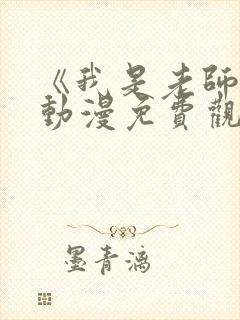 《我是老師
動漫免費觀
墨青漓